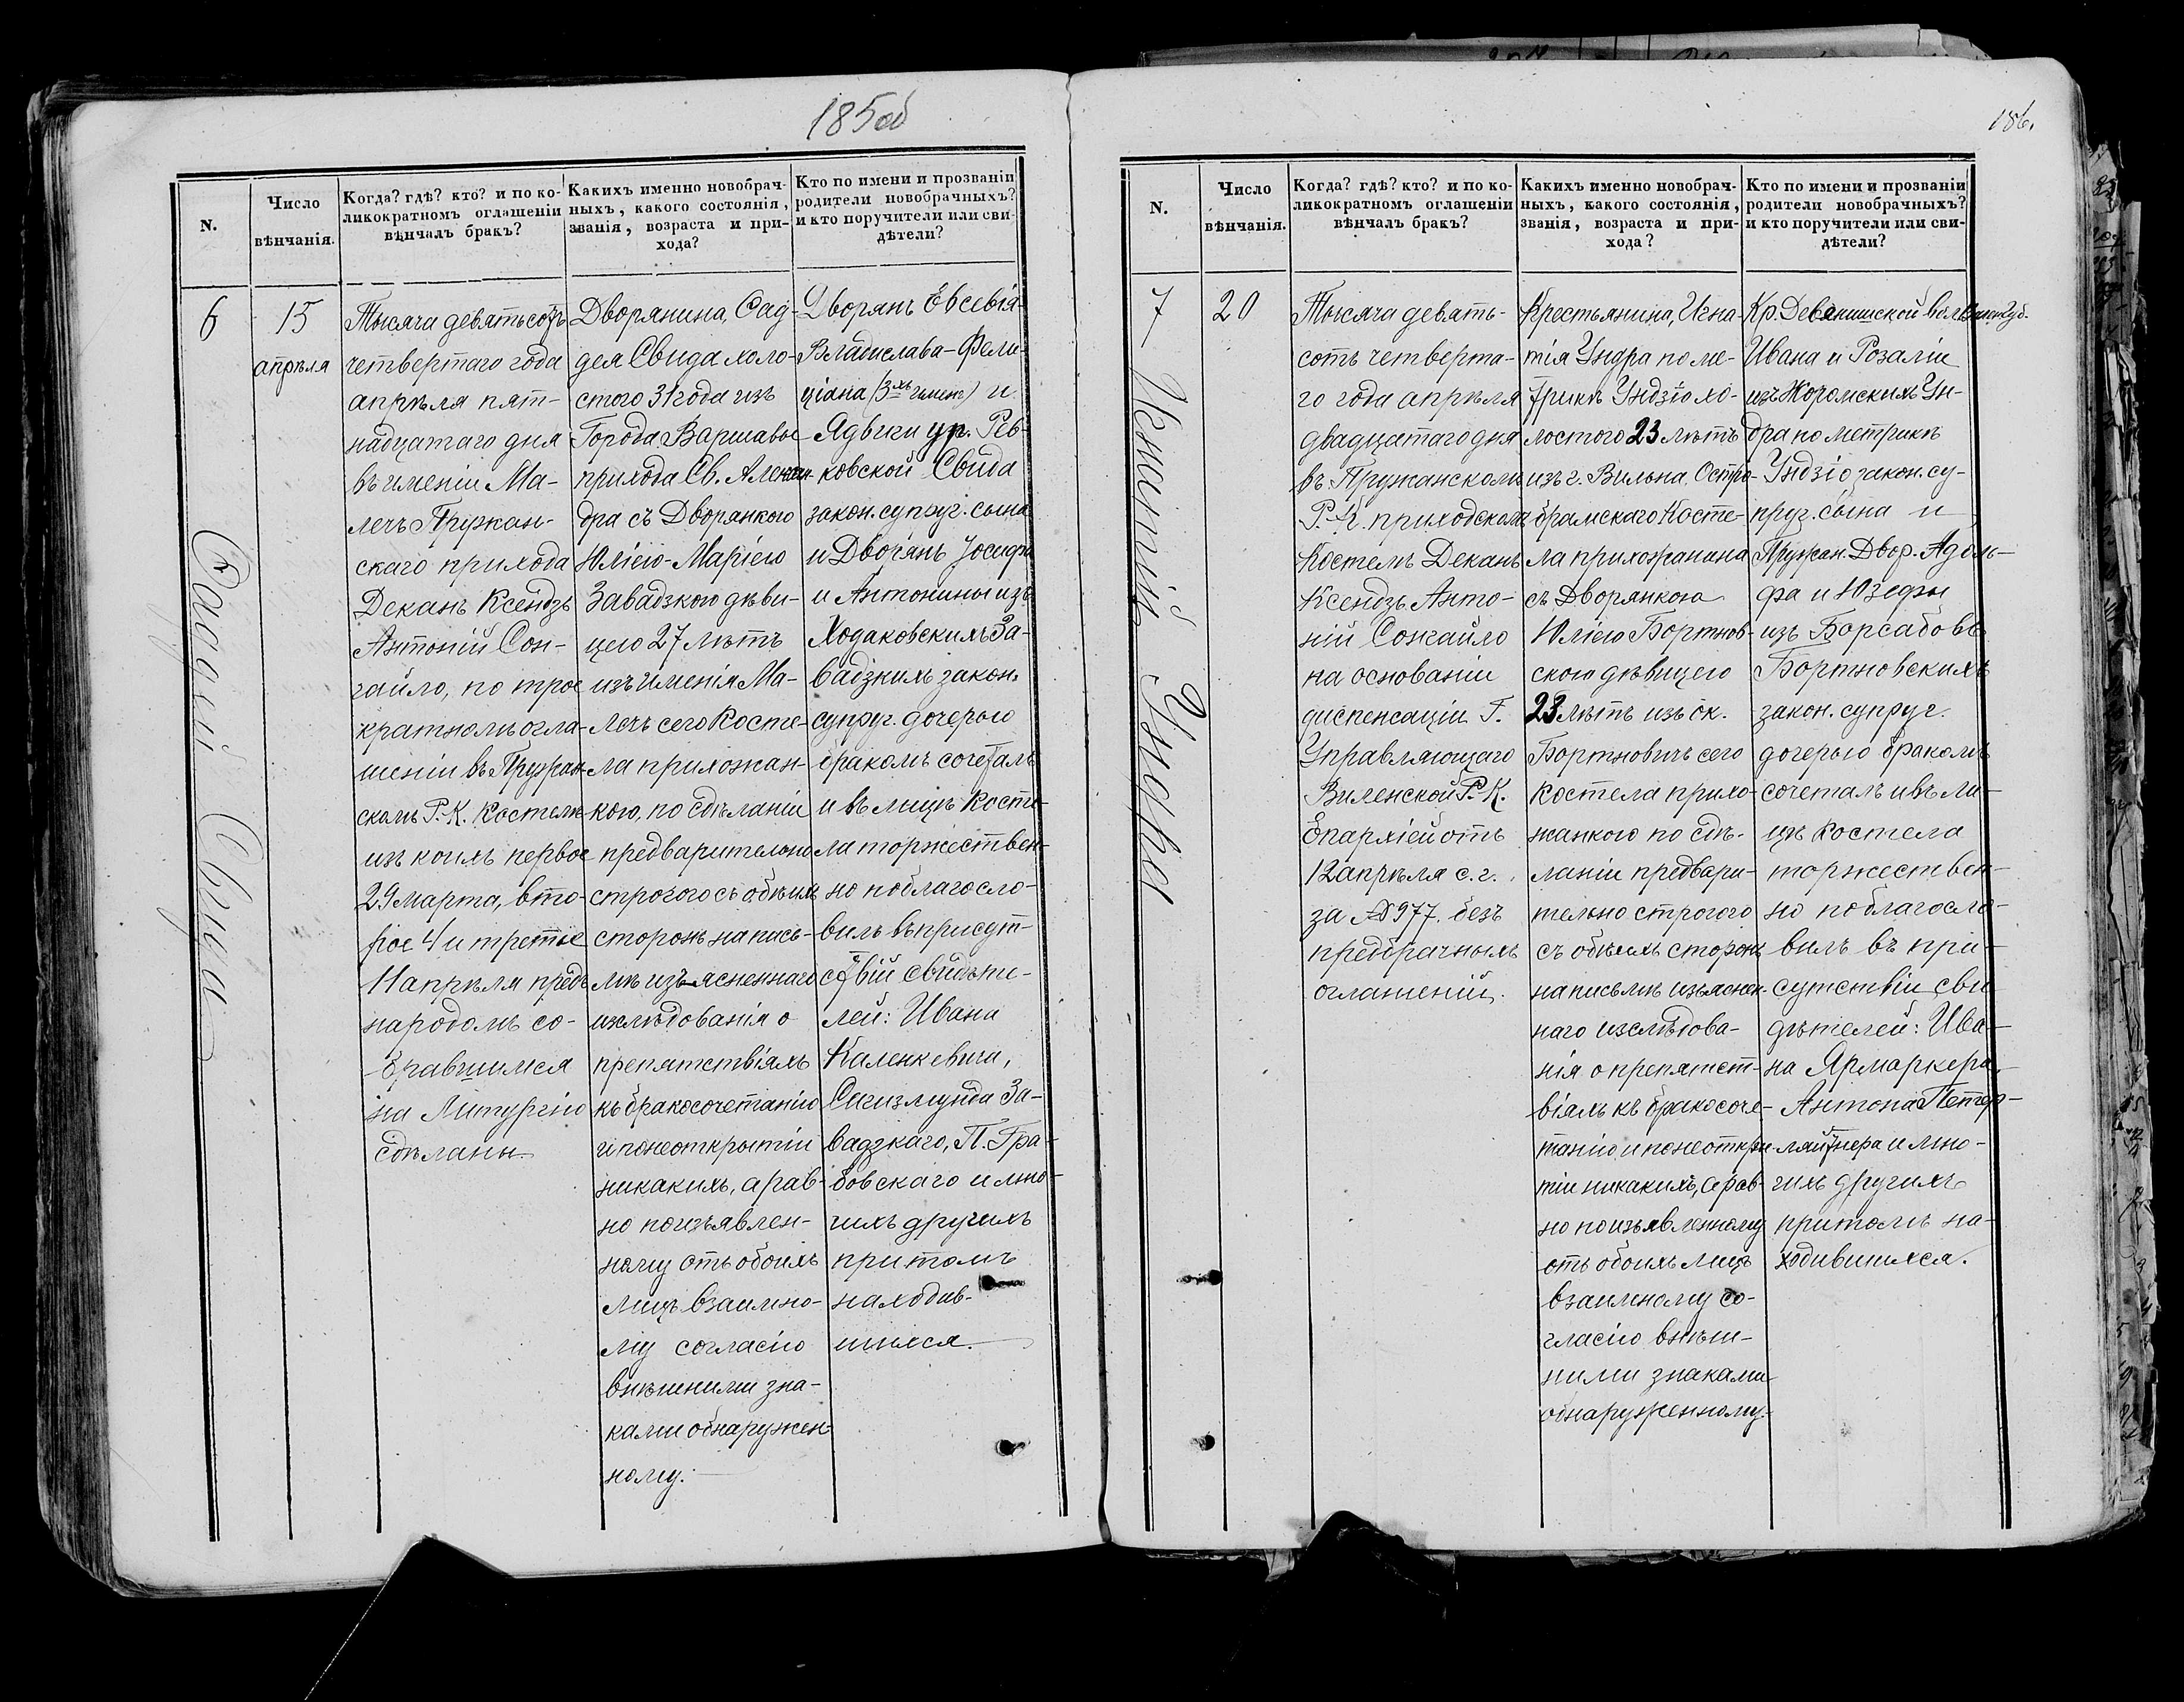 185об
N.
Число
вѣнчанія.
Когда? гдѣ? кто? и по ко-
ликократномъ оглашеніи
вѣнчалъ бракъ?
Какихъ именно новобрач-
ныхъ, какого состоянія,
званія, возраста и при-
хода?
Кто по имени и прозванію
родители новобрачныхъ?
и кто поручители или сви-
дѣтели?
6
15
апрѣля
Фадей Свида
Тысяча девятьсотъ
четвертаго года
апрѣля пят-
надцатаго дня
въ имѣніи Ма-
лечъ Пружан-
скаго прихода
Деканъ Ксендзъ
Антоній Сон-
гайло, по трое
кратномъ огла-
шеніи въ Пружан-
скомъ Р.-К. Костелѣ
изъ коихъ первое
29 марта, вто-
рое 4 и третье
11 апрѣля предъ
народомъ со-
бравшимся
на Литургію
сдѣланы.
Дворянина, Фад-
дея Свида холо-
стого 31 года изъ
Города Варшавы
прихода Св. Алексан-
дра съ Дворянкою
Юліею-Маріею
Завадзкою дѣви-
цею 27 лѣтъ
изъ имѣнія Ма-
лечъ сего Косте-
ла прихожан-
кою, по сдѣланіи
предварительно
строгого съ обѣихъ
сторонъ на пись-
мѣ изъясненнаго
изслѣдованія о
препятствіяхъ
къ бракосочетанію
и по неоткрытіи
никакихъ, а рав-
но по изъявлен-
ному отъ обоихъ
лицъ взаимно-
му согласію
внѣшними зна-
ками обнаружен-
ному.
Дворянъ Евсевія-
Владислава-Фели-
ціана (3хъ именъ) и
Ядвиги ур. Рев-
ковской Свида
закон. супруг. сына
и Дворянъ Іосифа
и Антонины изъ
Ходаковскихъ За-
вадзкихъ закон.
супруг. дочерью
бракомъ сочеталъ
и въ лицѣ Косте-
ла торжествен-
но поблагосло-
вилъ въ присут-
ствіи свидѣте-
лей: Ивана
Каленкевича,
Сигизмунда За-
вадзкаго, П. Гра-
бовскаго и мно-
гихъ другихъ
при томъ
находив-
шихся.
186.
N.
Число
вѣнчанія.
Когда? гдѣ? кто? и по ко-
ликократномъ оглашеніи
вѣнчалъ бракъ?
Какихъ именно новобрач-
ныхъ, какого состоянія,
званія, возраста и при-
хода?
Кто по имени и прозванію
родители новобрачныхъ?
и кто поручители или сви-
дѣтели?
7
20
Игнатій Ундра
Тысяча девять-
сотъ четверта-
го года апрѣля
двадцатаго дня
въ Пружанскомъ
Р.-К. приходскомъ
Костелѣ Деканъ
Ксендзъ Анто-
ній Сонгайло
на основаніи
диспенсаціи Г.
Управляющаго
Виленской Р.-К.
Епархіей отъ
12 апрѣля с. г.
за № 977. безъ
предбрачныхъ
оглашеній.
Крестьянина, Игна-
тія Ундра по ме-
трикѣ Ундзіо хо-
лостого 23 лѣтъ
изъ г. Вильна Остро-
брамскаго Косте-
ла прихожанина
съ Дворянкою
Юліею Бортнов-
скою дѣвицею
23 лѣтъ изъ ок.
Бортновичъ сего
костела прихо-
жанкою по сдѣ-
ланіи предвари-
тельно строгого
съ обѣихъ сторонъ
на письмѣ изъяснен-
наго изслѣдова-
нія о препятст-
віяхъ къ бракосоче-
танію и по неоткры-
тіи никакихъ, а рав-
но по изъявленному
отъ обоихъ лицъ
взаимному со-
гласію внѣш-
ними знаками
обнаруженному.
Кр. Девянишской вол.
Ивана и Розаліи
изъ Жоромскихъ Ун-
дра по метрикѣ
Ундзіо закон. су-
пруг. сына и
Пружан. Двор. Адоль-
фа и Юзефы
изъ Борсабовъ
Бортновскихъ
закон. супруг.
дочерью бракомъ
сочеталъ и въ ли-
цѣ костела
торжествен-
но поблагосло-
вилъ въ при-
сутствіи сви-
дѣтелей: Ива-
на Ярмаркера,
Антона Петер-
ляйтнера и мно-
гихъ другихъ
при томъ на-
ходившихся.